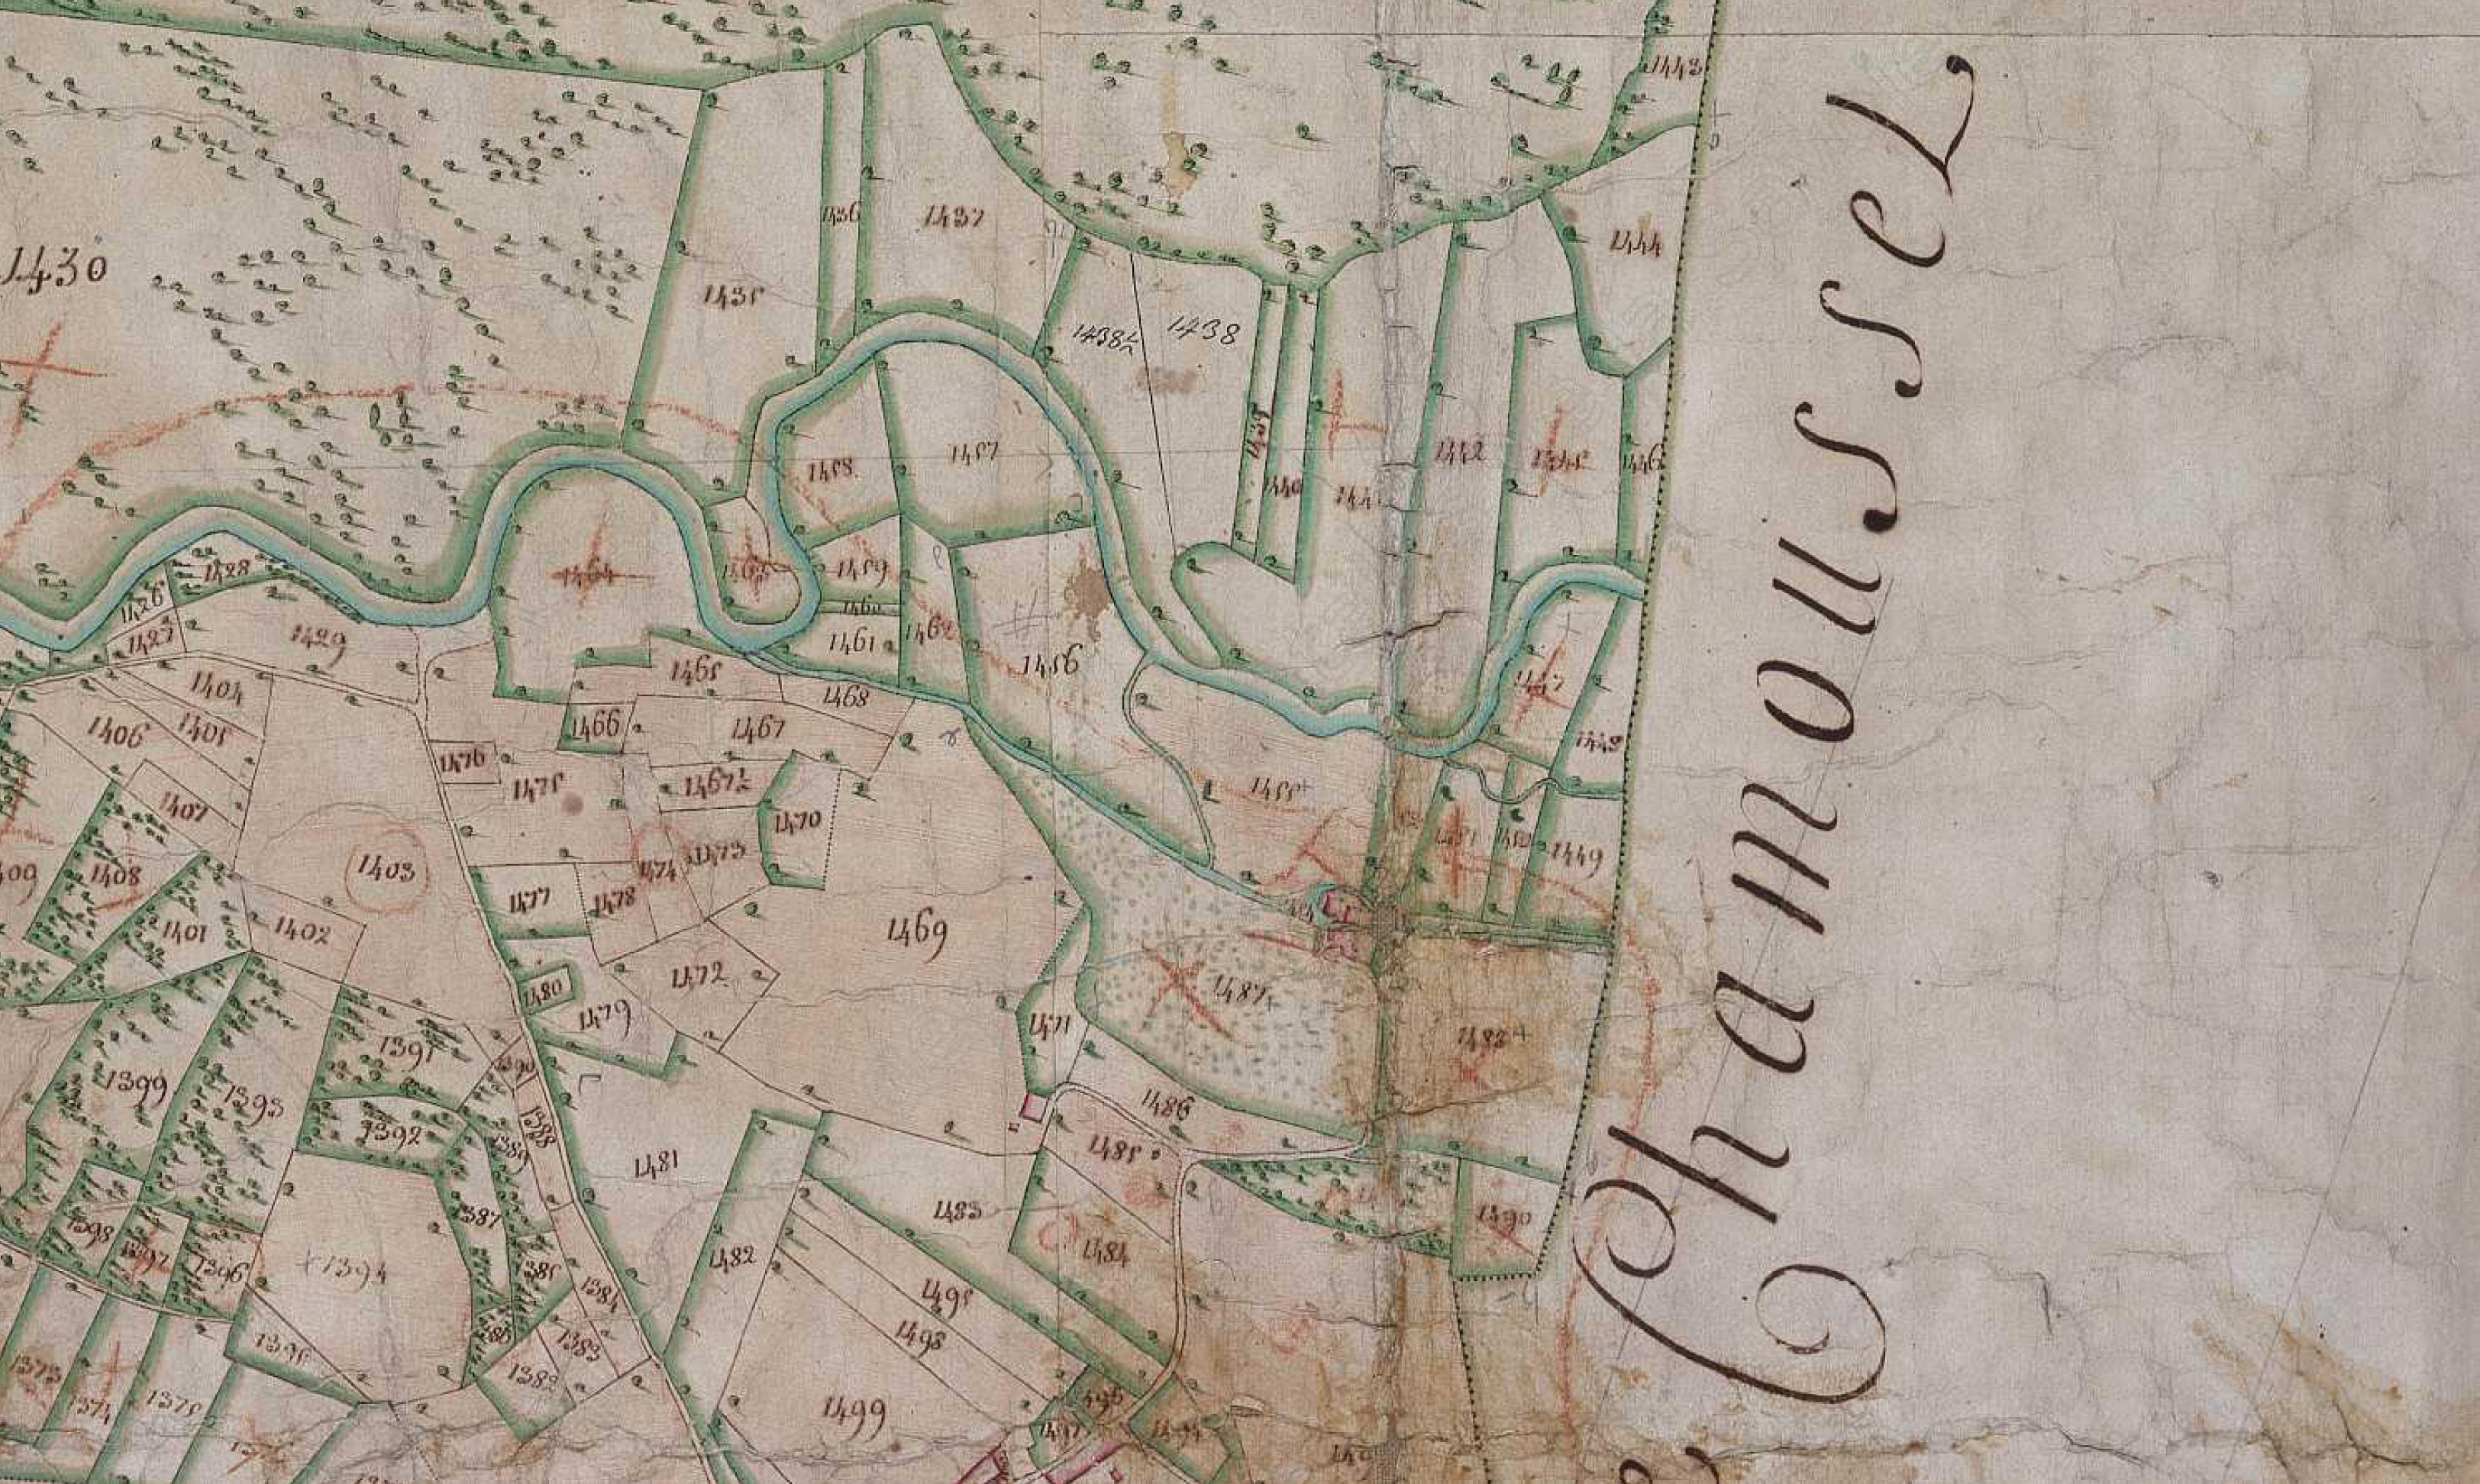 1443
1436
1437
1444
1430
1435
1438½
1438
1439
1442
1445
1446
1458
1457
1440
1441
1464
1463
1459
1428
1426
1460
1427
1429
1461
1462
1456
1465
1447
1404
1468
1466
1467
1405
1406
1448
1476
1475
1467½
1455
1407
1470
1451
1452
1449
1473
1474
1403
1408
1409
1477
1478
1401
1402
1469
1472
1480
1487
1479
1471
1488
1391
1390
1399
1393
1486
1392
1388
1389
1485
1481
1387
1483
1490
1398
1397
1396
1394
1482
1484
1385
1384
1495
1386
1383
1498
1395
1382
1373
1374
1375
1499
1496
1497
1494
Chamoussel